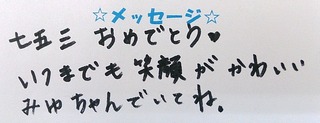 ☆メッセージ☆
七五三 おめでとう♥
いつまでも笑顔がかわいい
みゆちゃんでいてね。